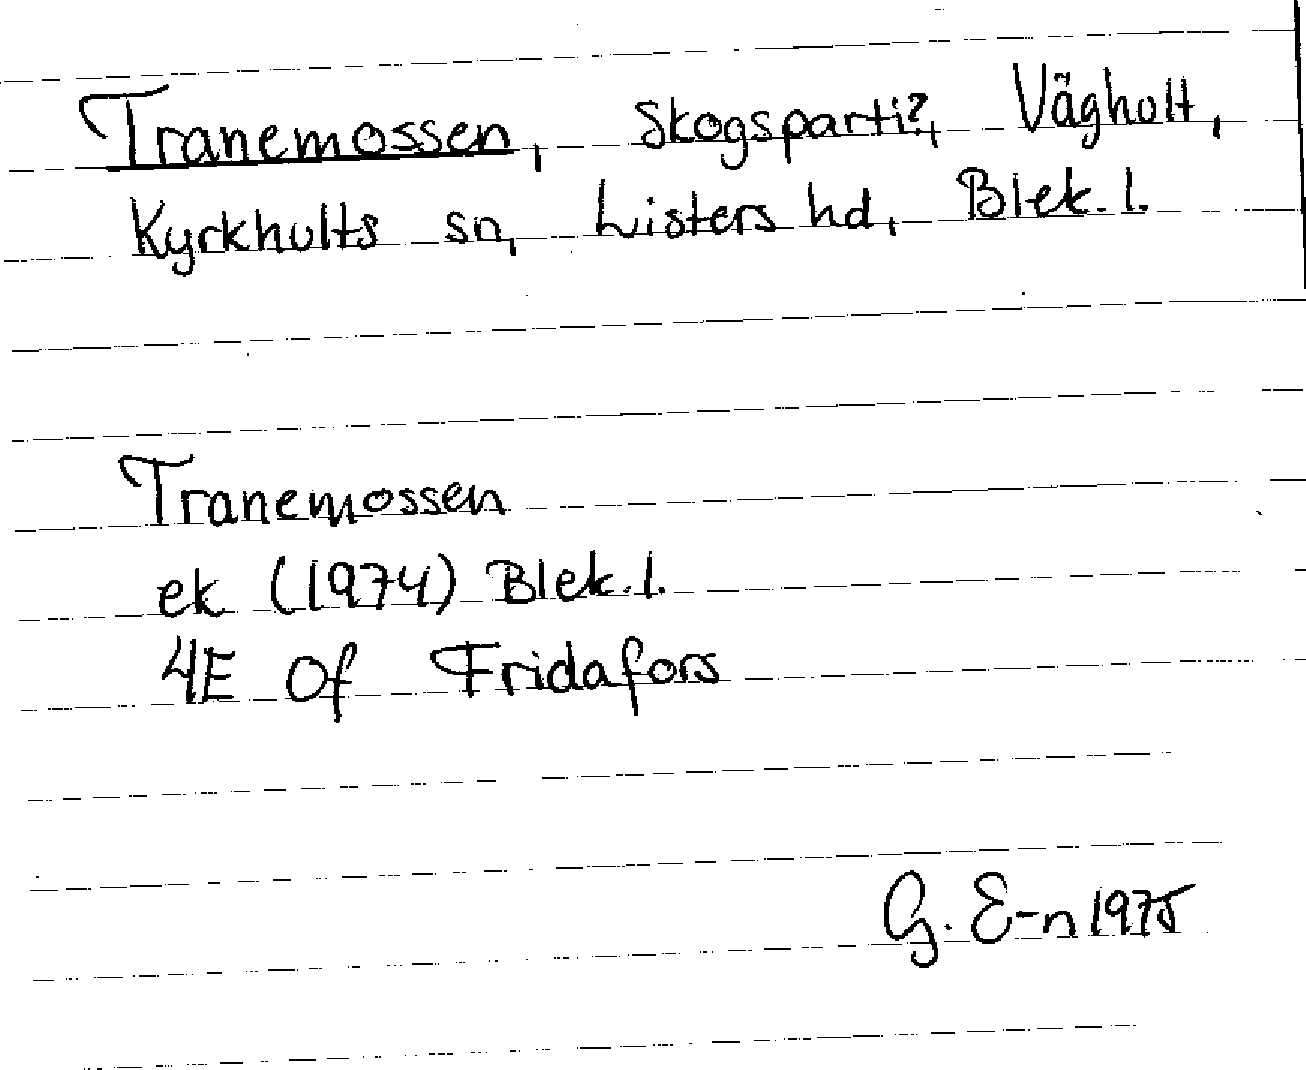 Tranemossen, Skogsparti?, Vägholt,
Kyrkhults sn, Listers hd, Blek. l.
Tranemossen
ek (1974) Blek. l.
4E 0f Fridafors
G. E-n 1975